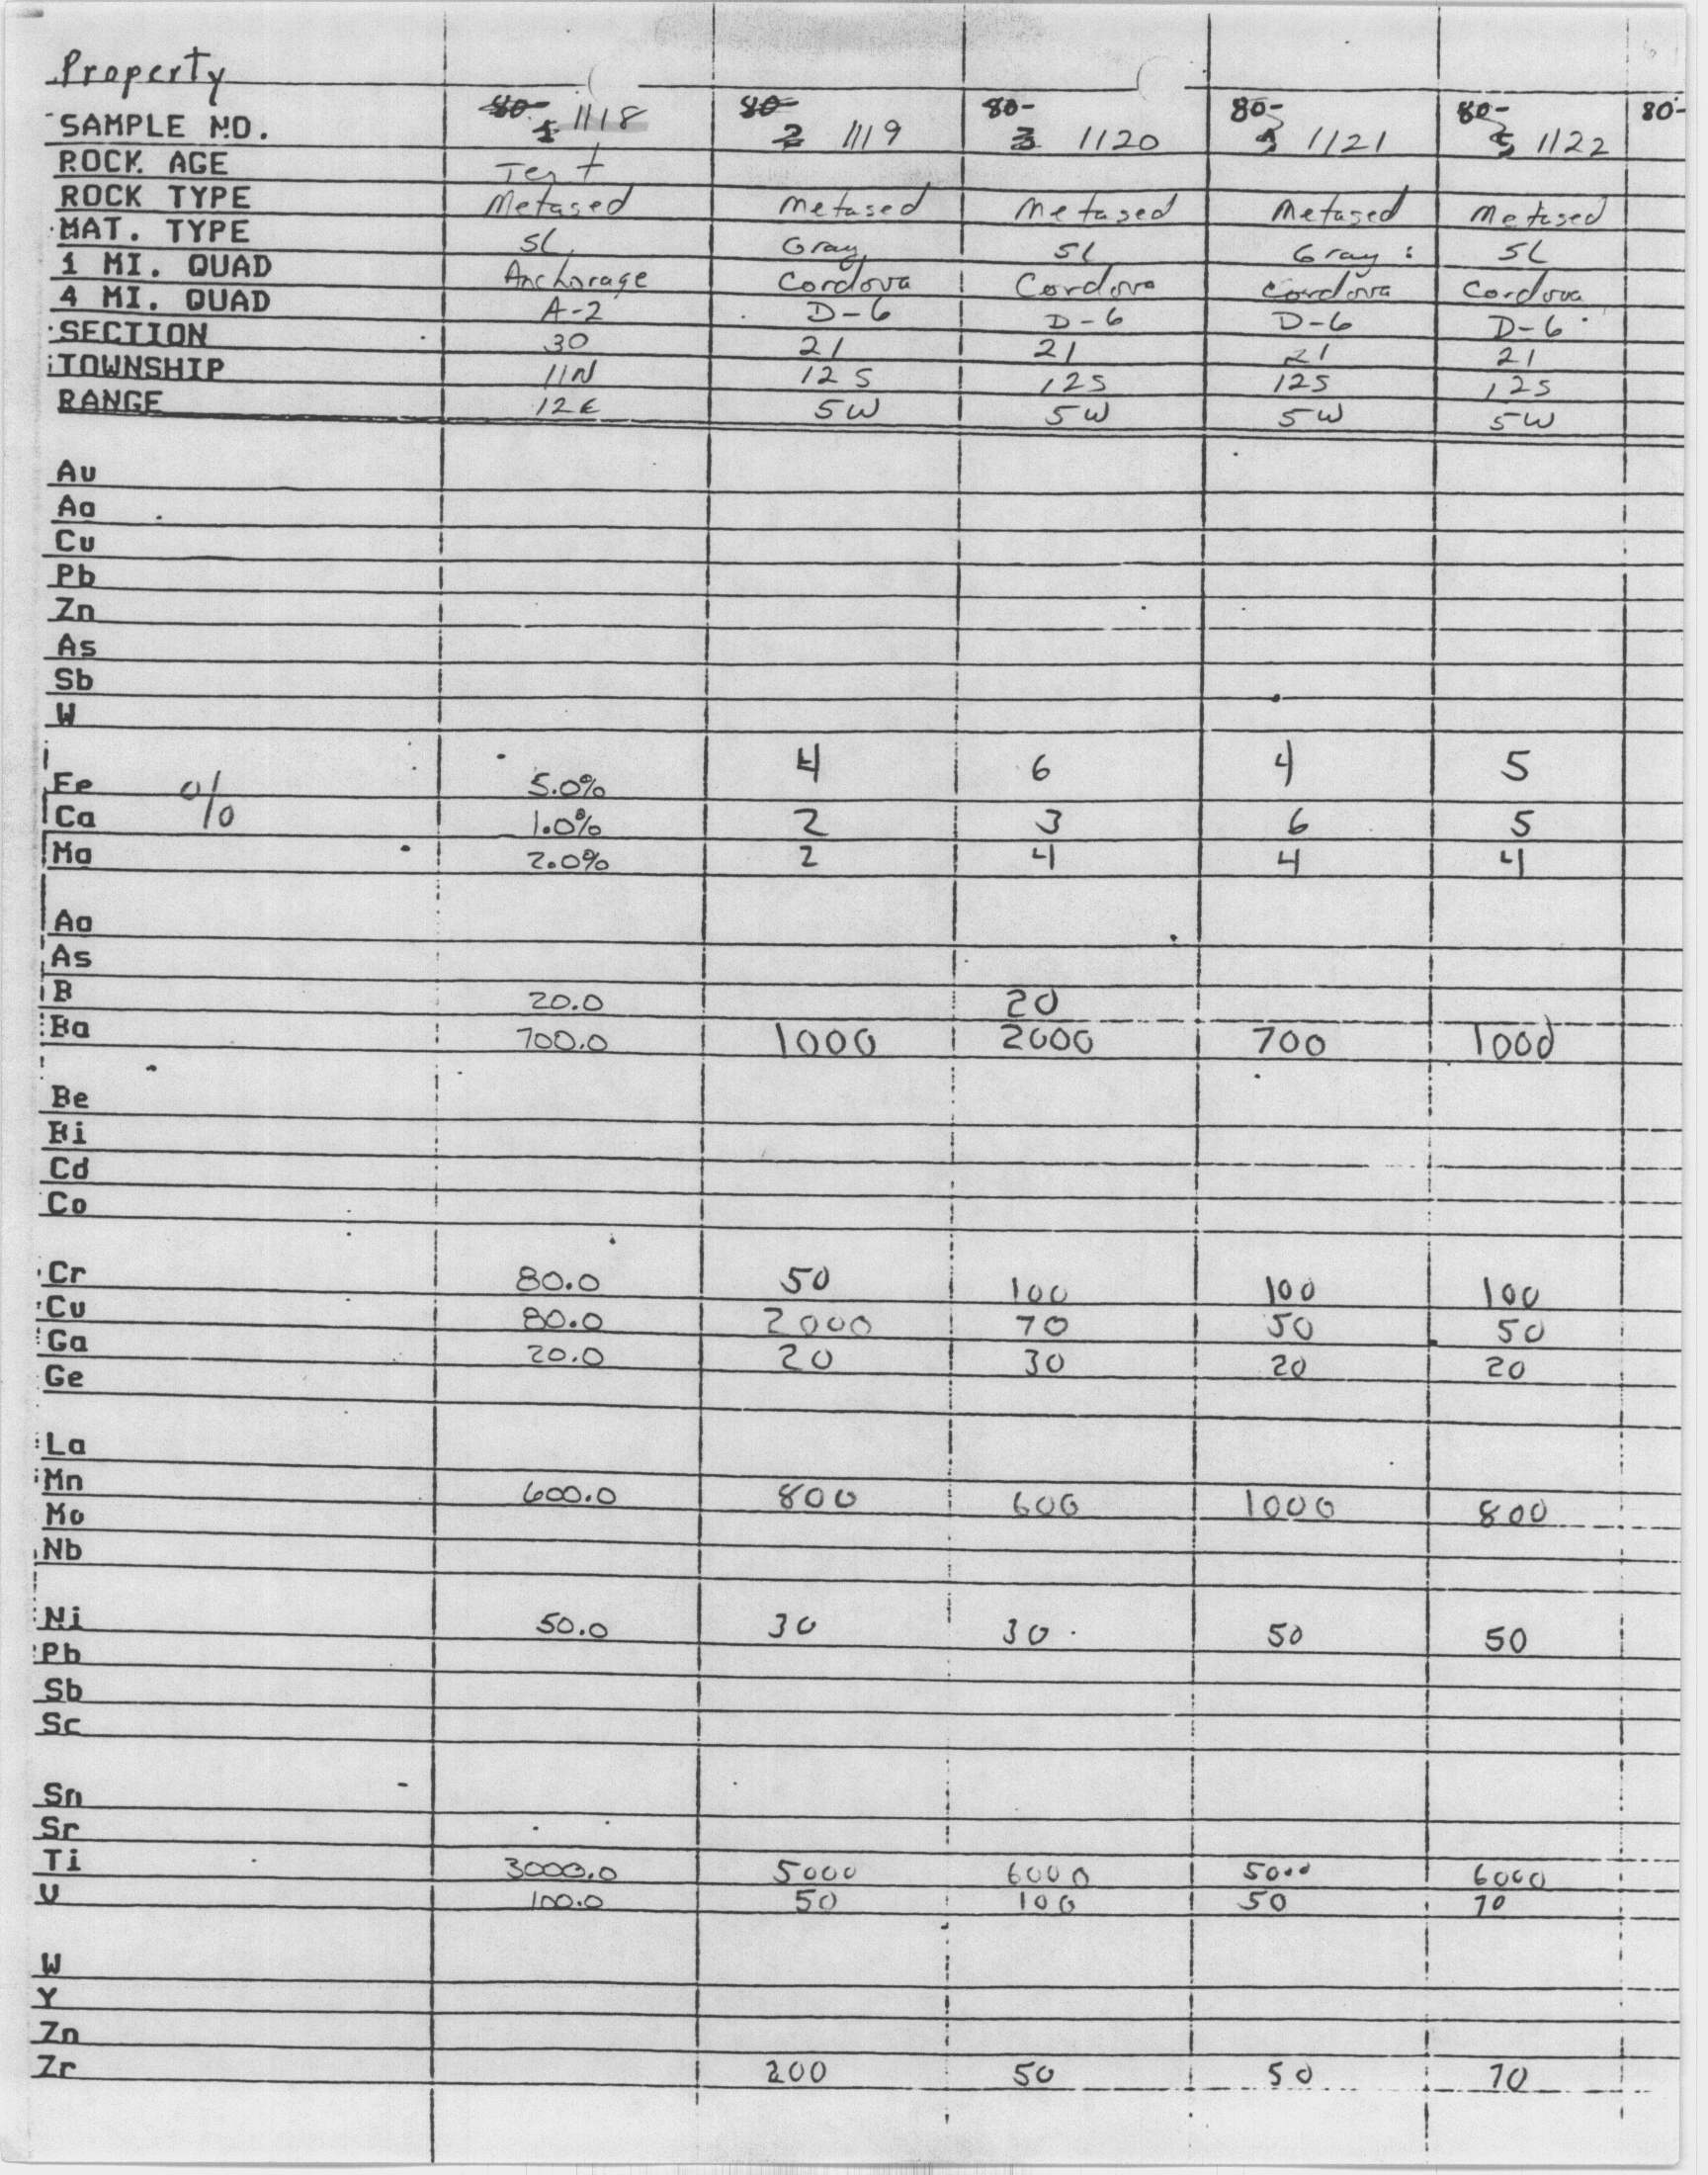 Property
SAMPLE NO. 80- 1 1118 80- 2 1119 80- 3 1120 80- 1121 80- 5 1122 80-
ROCK AGE Tert
ROCK TYPE Metased Metased Metased Metased Metased
MAT. TYPE SL Gray SL Gray SL
1 MI. QUAD Anchorage Cordova Cordova Cordova Cordova
4 MI. QUAD A-2 D-6 D-6 D-6 D-6
SECTION 30 21 21 21 21
TOWNSHIP 11N 12S 12S 12S 12S
RANGE 12E 5W 5W 5W 5W
Au
Ag
Cu
Pb
Zn
As
Sb
W
Fe % 5.0% 4 6 4 5
Ca 1.0% 2 3 6 5
Mg 2.0% 2 4 4 4
Ag
As
B 20.0 20
Ba 700.0 1000 2000 700 1000
Be
Bi
Cd
Co
Cr 80.0 50 100 100 100
Cu 80.0 2000 70 50 50
Ga 20.0 20 30 20 20
Ge
La
Mn 600.0 800 600 1000 800
Mo
Nb
Ni 50.0 30 30 50 50
Pb
Sb
Sc
Sn
Sr
Ti 3000.0 5000 6000 5000 6000
V 100.0 50 100 50 70
W
Y
Zn
Zr 200 50 50 70